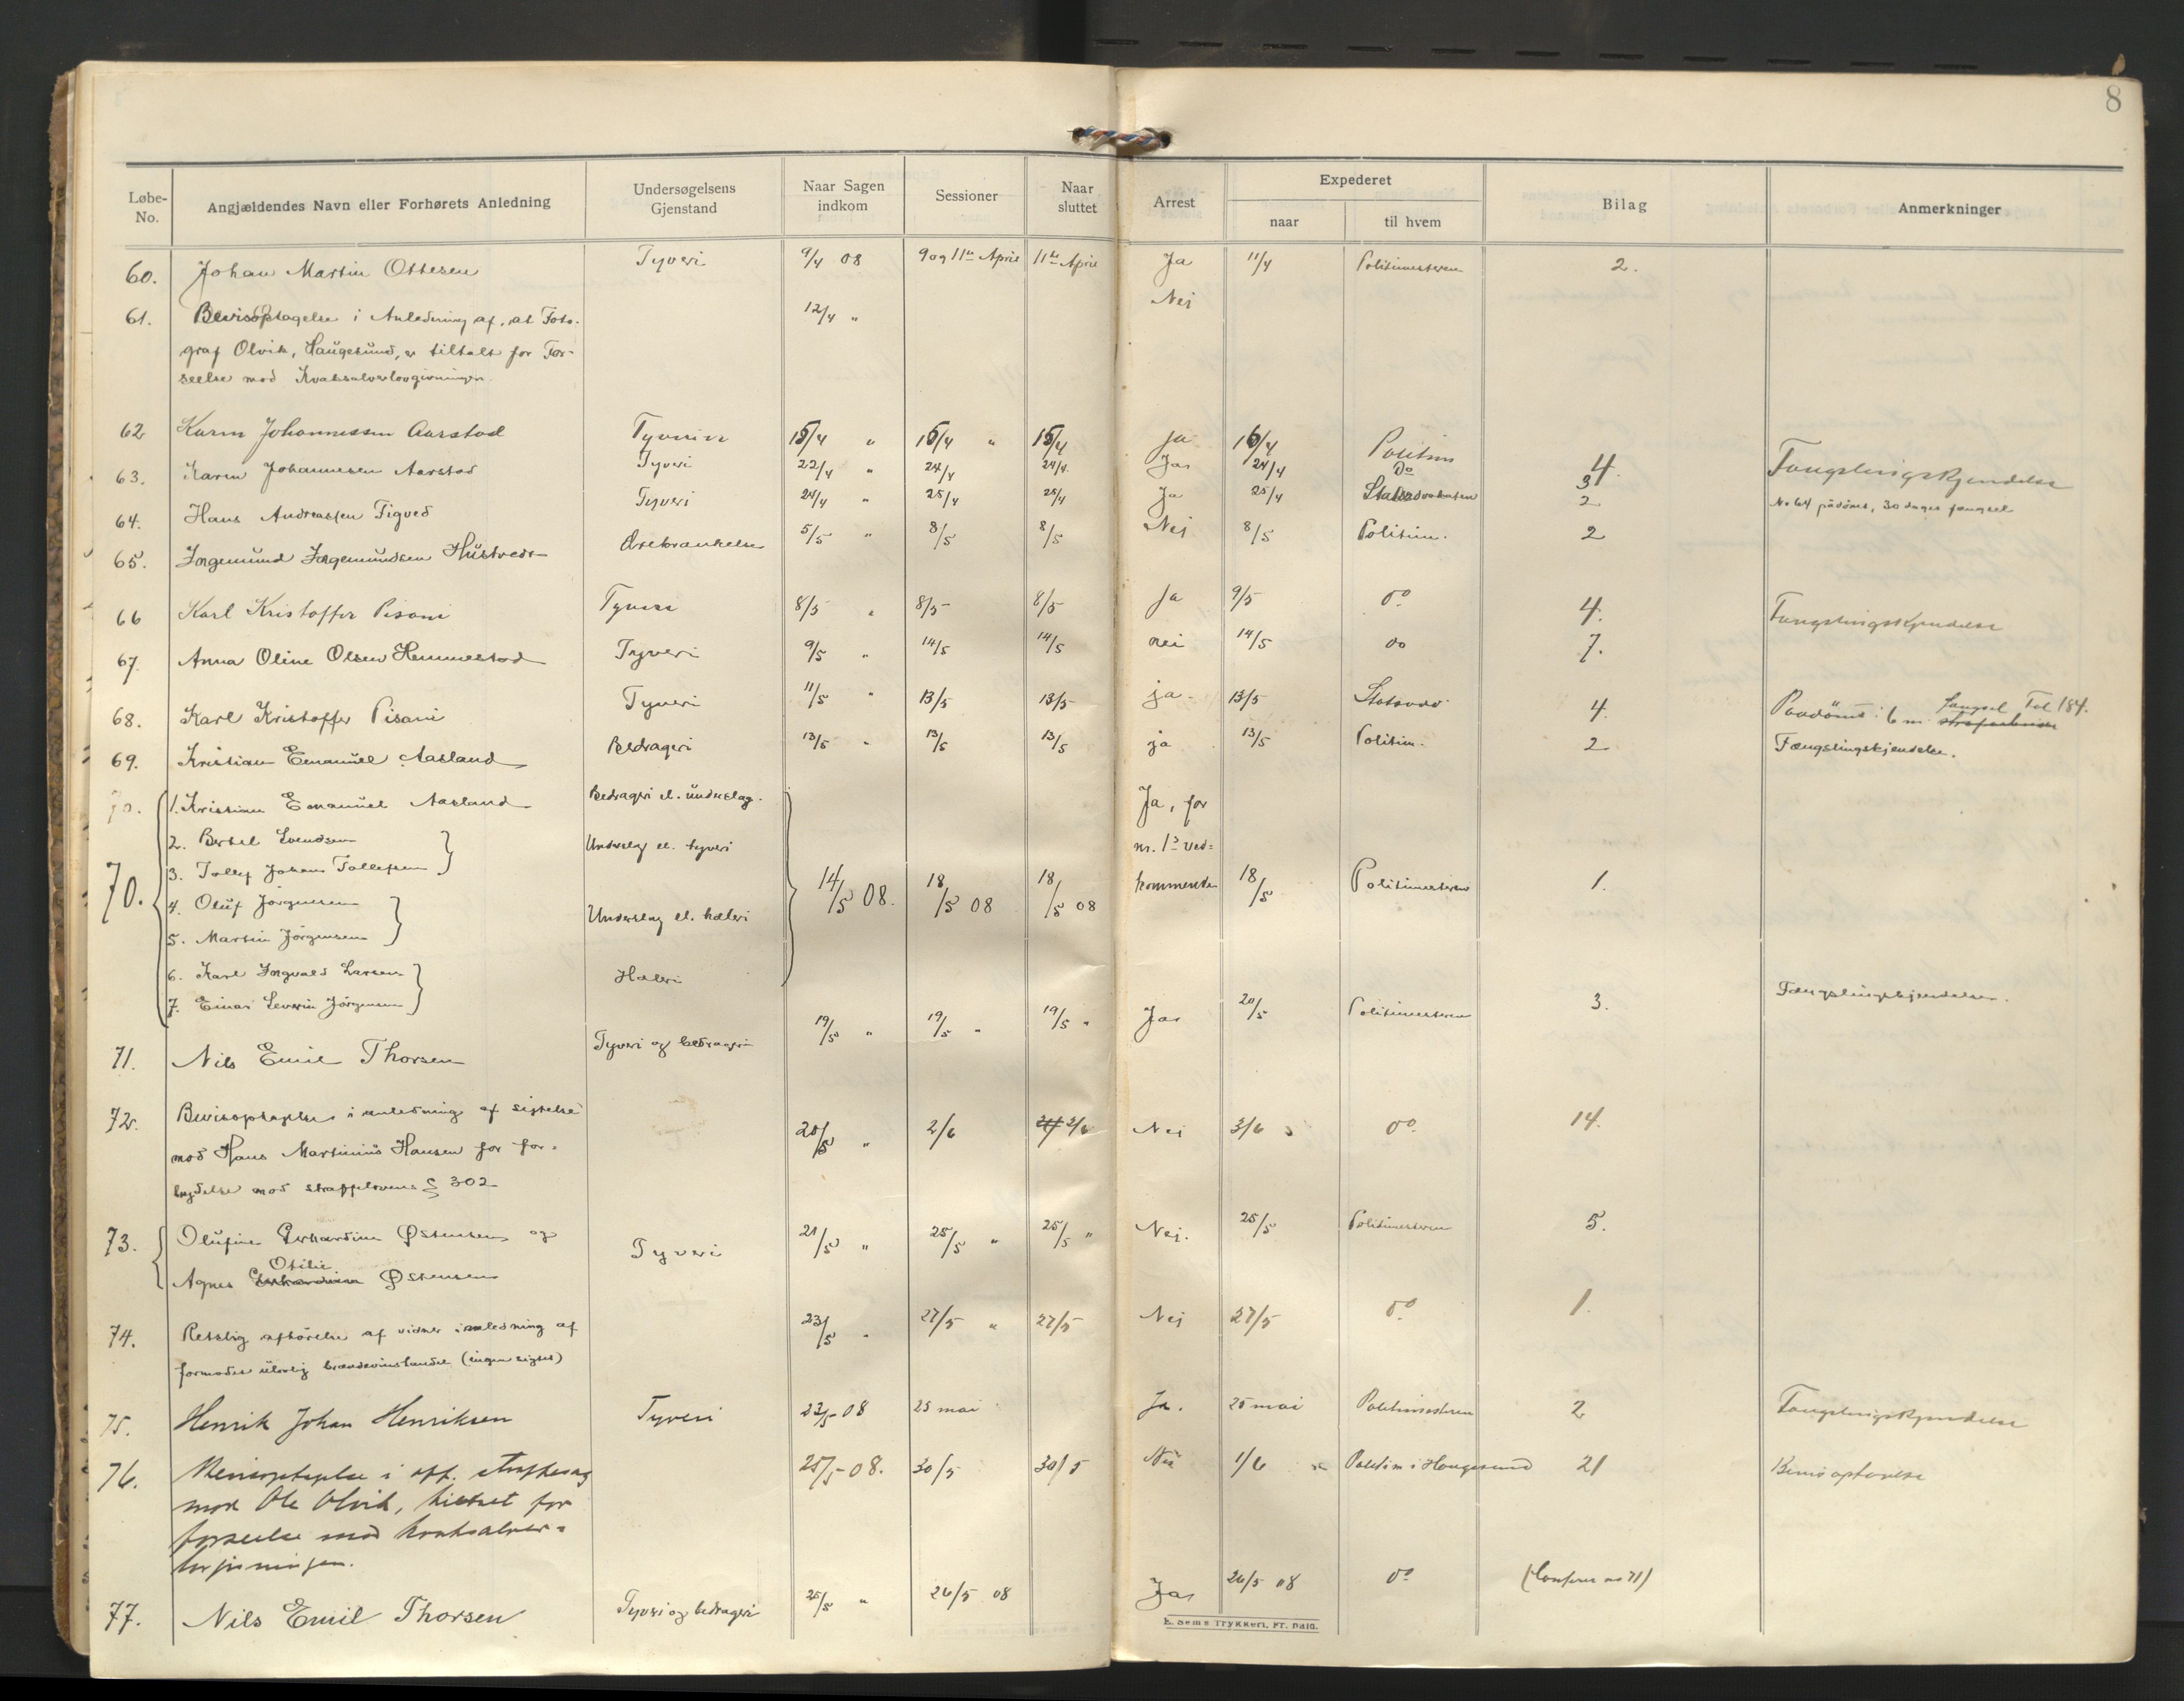 8
Løbe-No. Angjældendes Navn eller Forhørets Anledning Undersøgelsens Gjenstand Naar Sagen indkom Sessioner Naar sluttet Arrest Expederet naar til hvem Bilag Anmerkninger
60. Johan Martin Ottesen Tyveri 9/4 08 9 og 11te April 11te April Ja 11/4 Politimesteren 2.
61. Bevisoptagelse i Anledning af, at Foto- 12/4 " Nei
graf Olvik, Haugesund, er tiltalt for For-
seelse mod Kvaksalverlovgivningen.
62 Karen Johannessen Aarstad Tyveri 15/4 " 15/4 " 15/4 ja 16/4 Politim 4. Fængslingskjendelse
63. Karen Johannesen Aarstad Tyveri 22/4 " 24/4 24/4 Ja 24/4 Do 3
64. Hans Andreassen Figved Tyveri 24/4 " 25/4 25/4 Ja 25/4 Statsadvokaten 2 No 64 pådömt, 30 dages fængsel
65. Ingemund Ingemundsen Hustvedt Ærekrænkelse 5/5 " 8/5 8/5 Nei 8/5 Politim. 2
66 Karl Kristoffer Pisani Tyveri 8/5 " 8/5 8/5 Ja 9/5 do 4. Fængslingskjendelse
67. Anna Oline Olsen Hemmestad Tyveri 9/5 " 14/5 14/5 nei 14/5 do 7.
68. Karl Kristoffer Pisani Tyveri 11/5 " 13/5 13/5 ja 13/5 Statsadv. 4. Paadömt: 6 m. fængsel
69. Kristian Emanuel Aasland Bedrageri 13/5 " 13/5 13/5 ja 13/5 Politim. 2 Fængslingskjendelse.
70. 1. Kristian Emanuel Aasland Bedrageri el. underslag. Ja, for
2. Bertel Svendsen Underslag el. tyveri nr. 1s ved-
70. 3. Tollef Johan Tollefsen 14/5 08. 18/5 08 18/5 08 kommende 18/5 Politimesteren 1.
4. Oluf Jörgensen Underslag el. hæleri
5. Martin Jörgensen
6. Karl Ingvald Larsen Hæleri
7. Einar Severin Jörgensen
71. Nils Emil Thorsen Tyveri og bedrageri 19/5 " 19/5 " 19/5 " Ja 20/5 Politimesteren 3. Fængslingskjendelse.
72. Bevisoptagelse i anledning af sigtelse 20/5 " 2/6 2/6 Nei 3/6 do 14.
mod Hans Martinius Hansen for for-
brydelse mod straffelovens § 302
73. Olufine Østensen og Tyveri 21/5 " 25/5 " 25/5 " Nei. 25/5 Politimesteren 5.
Agnes Otilie Østensen
74. Retslig afhörelse af vidner i anledning af 23/5 " 27/5 " 27/5 Nei 27/5 do 1.
formodet ulovlig brændevinshandel (ingen sigtet)
75. Henrik Johan Henriksen Tyveri 23/5 08 25 mai Ja. 25 mai Politimesteren 2 Fængslingskjendelse
76. Bevisoptagelse i off. straffesag 25/5 08. 30/5 30/5 Nei 1/6 Politim i Haugesund 21 Bevisoptagelse
mod Ole Olvik, tiltalt for
forseelse mod kvaksalver-
lovgivningen.
77. Nils Emil Thorsen Tyveri og bedrageri 25/5 " 26/5 08 Ja 26/5 08 do (Confer no 71)
E. Sems Trykkeri, Fr. hald.